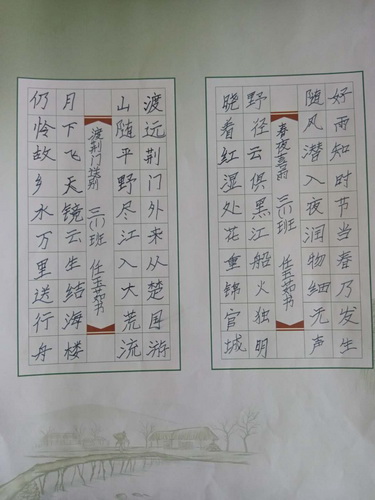 好雨知时节当春乃发生
随风潜入夜润物细无声
春夜喜雨 三(1)班 任玉茹书
野径云俱黑江船火独明
晓看红湿处花重锦官城
渡远荆门外来从楚国游
山随平野尽江入大荒流
渡荆门送别 三(1)班 任玉茹书
月下飞天镜云生结海楼
仍怜故乡水万里送行舟